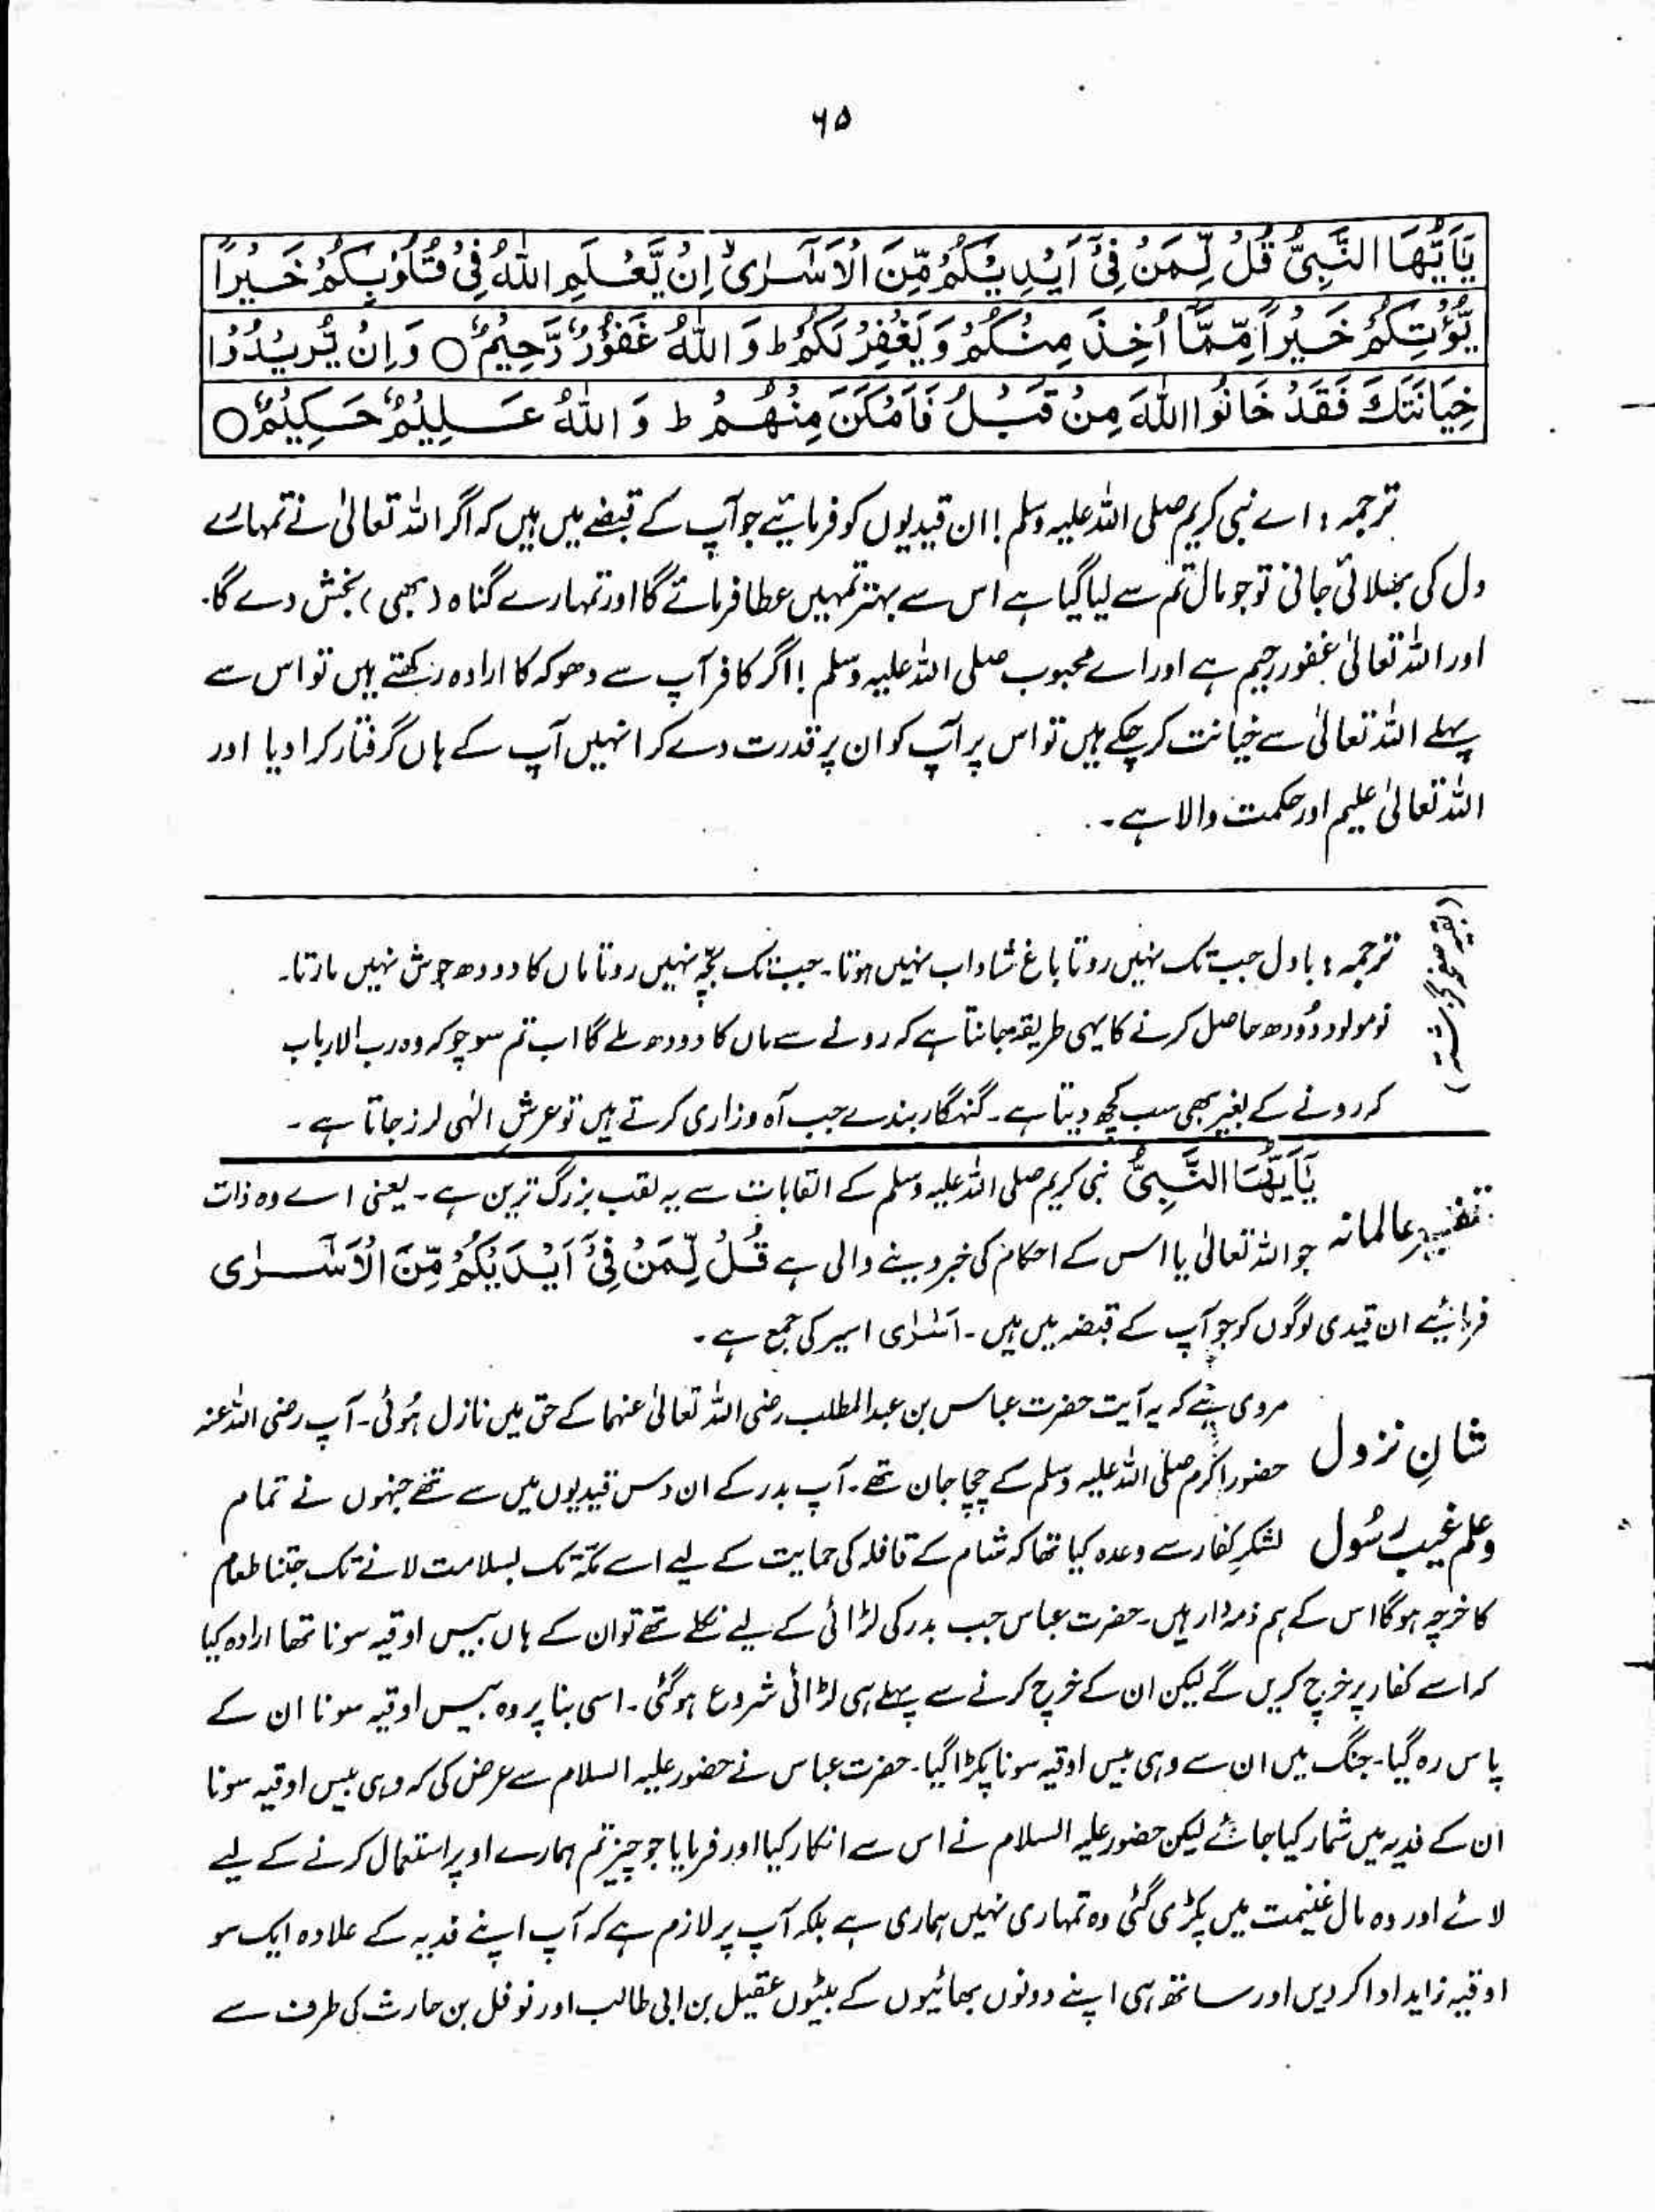 ۶۵
يَٰٓاَيُّهَا النَّبِىُّ قُلْ لِّمَنْ فِىْٓ اَيْدِيْكُمْ مِّنَ الْاَسْرٰىٓ اِنْ يَّعْلَمِ اللّٰهُ فِىْ قُلُوْبِكُمْ خَيْرًا
يُّؤْتِكُمْ خَيْرًا مِّمَّآ اُخِذَ مِنْكُمْ وَيَغْفِرْ لَكُمْ ط وَاللّٰهُ غَفُوْرٌ رَّحِيْمٌ ○ وَاِنْ يُّرِيْدُوْا
خِيَانَتَكَ فَقَدْ خَانُوا اللّٰهَ مِنْ قَبْلُ فَاَمْكَنَ مِنْهُمْ ط وَاللّٰهُ عَلِيْمٌ حَكِيْمٌ ○
ترجمہ : اے نبی کریم صلی اللہ علیہ وسلم ! ان قیدیوں کو فرمائیے جو آپ کے قبضے میں ہیں کہ اگر اللہ تعالیٰ نے تمہارے
دل کی بھلائی جانی تو جو مال تم سے لیا گیا ہے اس سے بہتر تمہیں عطا فرمائے گا اور تمہارے گناہ (بھی) بخش دے گا۔
اور اللہ تعالیٰ غفور رحیم ہے اور اے محبوب صلی اللہ علیہ وسلم ! اگر کافر آپ سے دھوکہ کا ارادہ رکھتے ہیں تو اس سے
پہلے اللہ تعالیٰ سے خیانت کر چکے ہیں تو اس پر آپ کو ان پر قدرت دے کر انہیں آپ کے ہاں گرفتار کرا دیا اور
اللہ تعالیٰ علیم اور حکمت والا ہے۔
(بقیہ صفحہ گزشتہ)
ترجمہ : بادل جب تک نہیں روتا باغ شاداب نہیں ہوتا۔ جب تک بچّہ نہیں روتا ماں کا دودھ جوش نہیں مارتا۔
نومولود دُودھ حاصل کرنے کا یہی طریقہ جانتا ہے کہ رونے سے ماں کا دودھ ملے گا اب تم سوچو کہ وہ رب الارباب
کہ رونے کے بغیر بھی سب کچھ دیتا ہے۔ گنہگار بندے جب آہ وزاری کرتے ہیں تو عرشِ الٰہی لرز جاتا ہے۔
تفسیرِ عالمانہ
يَٰٓاَيُّهَا النَّبِىُّ نبی کریم صلی اللہ علیہ وسلم کے القابات سے یہ لقب بزرگ ترین ہے۔ یعنی اے وہ ذات
جو اللہ تعالیٰ یا اس کے احکام کی خبر دینے والی ہے قُلْ لِّمَنْ فِىْٓ اَيْدِيْكُمْ مِّنَ الْاَسْرٰى
فرمائیے ان قیدی لوگوں کو جو آپ کے قبضہ میں ہیں۔ اَسْرٰى اسیر کی جمع ہے۔
شانِ نزول
وعلم غیب رسُول
مروی ہے کہ یہ آیت حضرت عباس بن عبدالمطلب رضی اللہ تعالیٰ عنہما کے حق میں نازل ہُوئی۔ آپ رضی اللہ عنہ
حضور اکرم صلی اللہ علیہ وسلم کے چچا جان تھے۔ آپ بدر کے ان دس قیدیوں میں سے تھے جنہوں نے تمام
لشکرِ کفار سے وعدہ کیا تھا کہ شام کے قافلہ کی حمایت کے لیے اسے مکّہ تک بسلامت لانے تک جتنا طعام
کا خرچہ ہوگا اس کے ہم ذمہ دار ہیں۔ حضرت عباس جب بدر کی لڑائی کے لیے نکلے تھے تو ان کے ہاں بیس اوقیہ سونا تھا ارادہ کیا
کہ اسے کفار پر خرچ کریں گے لیکن ان کے خرچ کرنے سے پہلے ہی لڑائی شروع ہوگئی۔ اسی بنا پر وہ بیس اوقیہ سونا ان کے
پاس رہ گیا۔ جنگ میں ان سے وہی بیس اوقیہ سونا پکڑا گیا۔ حضرت عباس نے حضور علیہ السلام سے عرض کی کہ وہی بیس اوقیہ سونا
ان کے فدیہ میں شمار کیا جائے لیکن حضور علیہ السلام نے اس سے انکار کیا اور فرمایا جو چیز تم ہمارے اوپر استعمال کرنے کے لیے
لائے اور وہ مال غنیمت میں پکڑی گئی وہ تمہاری نہیں ہماری ہے بلکہ آپ پر لازم ہے کہ آپ اپنے فدیہ کے علاوہ ایک سو
اوقیہ زاید ادا کر دیں اور ساتھ ہی اپنے دونوں بھائیوں کے بیٹوں عقیل بن ابی طالب اور نوفل بن حارث کی طرف سے